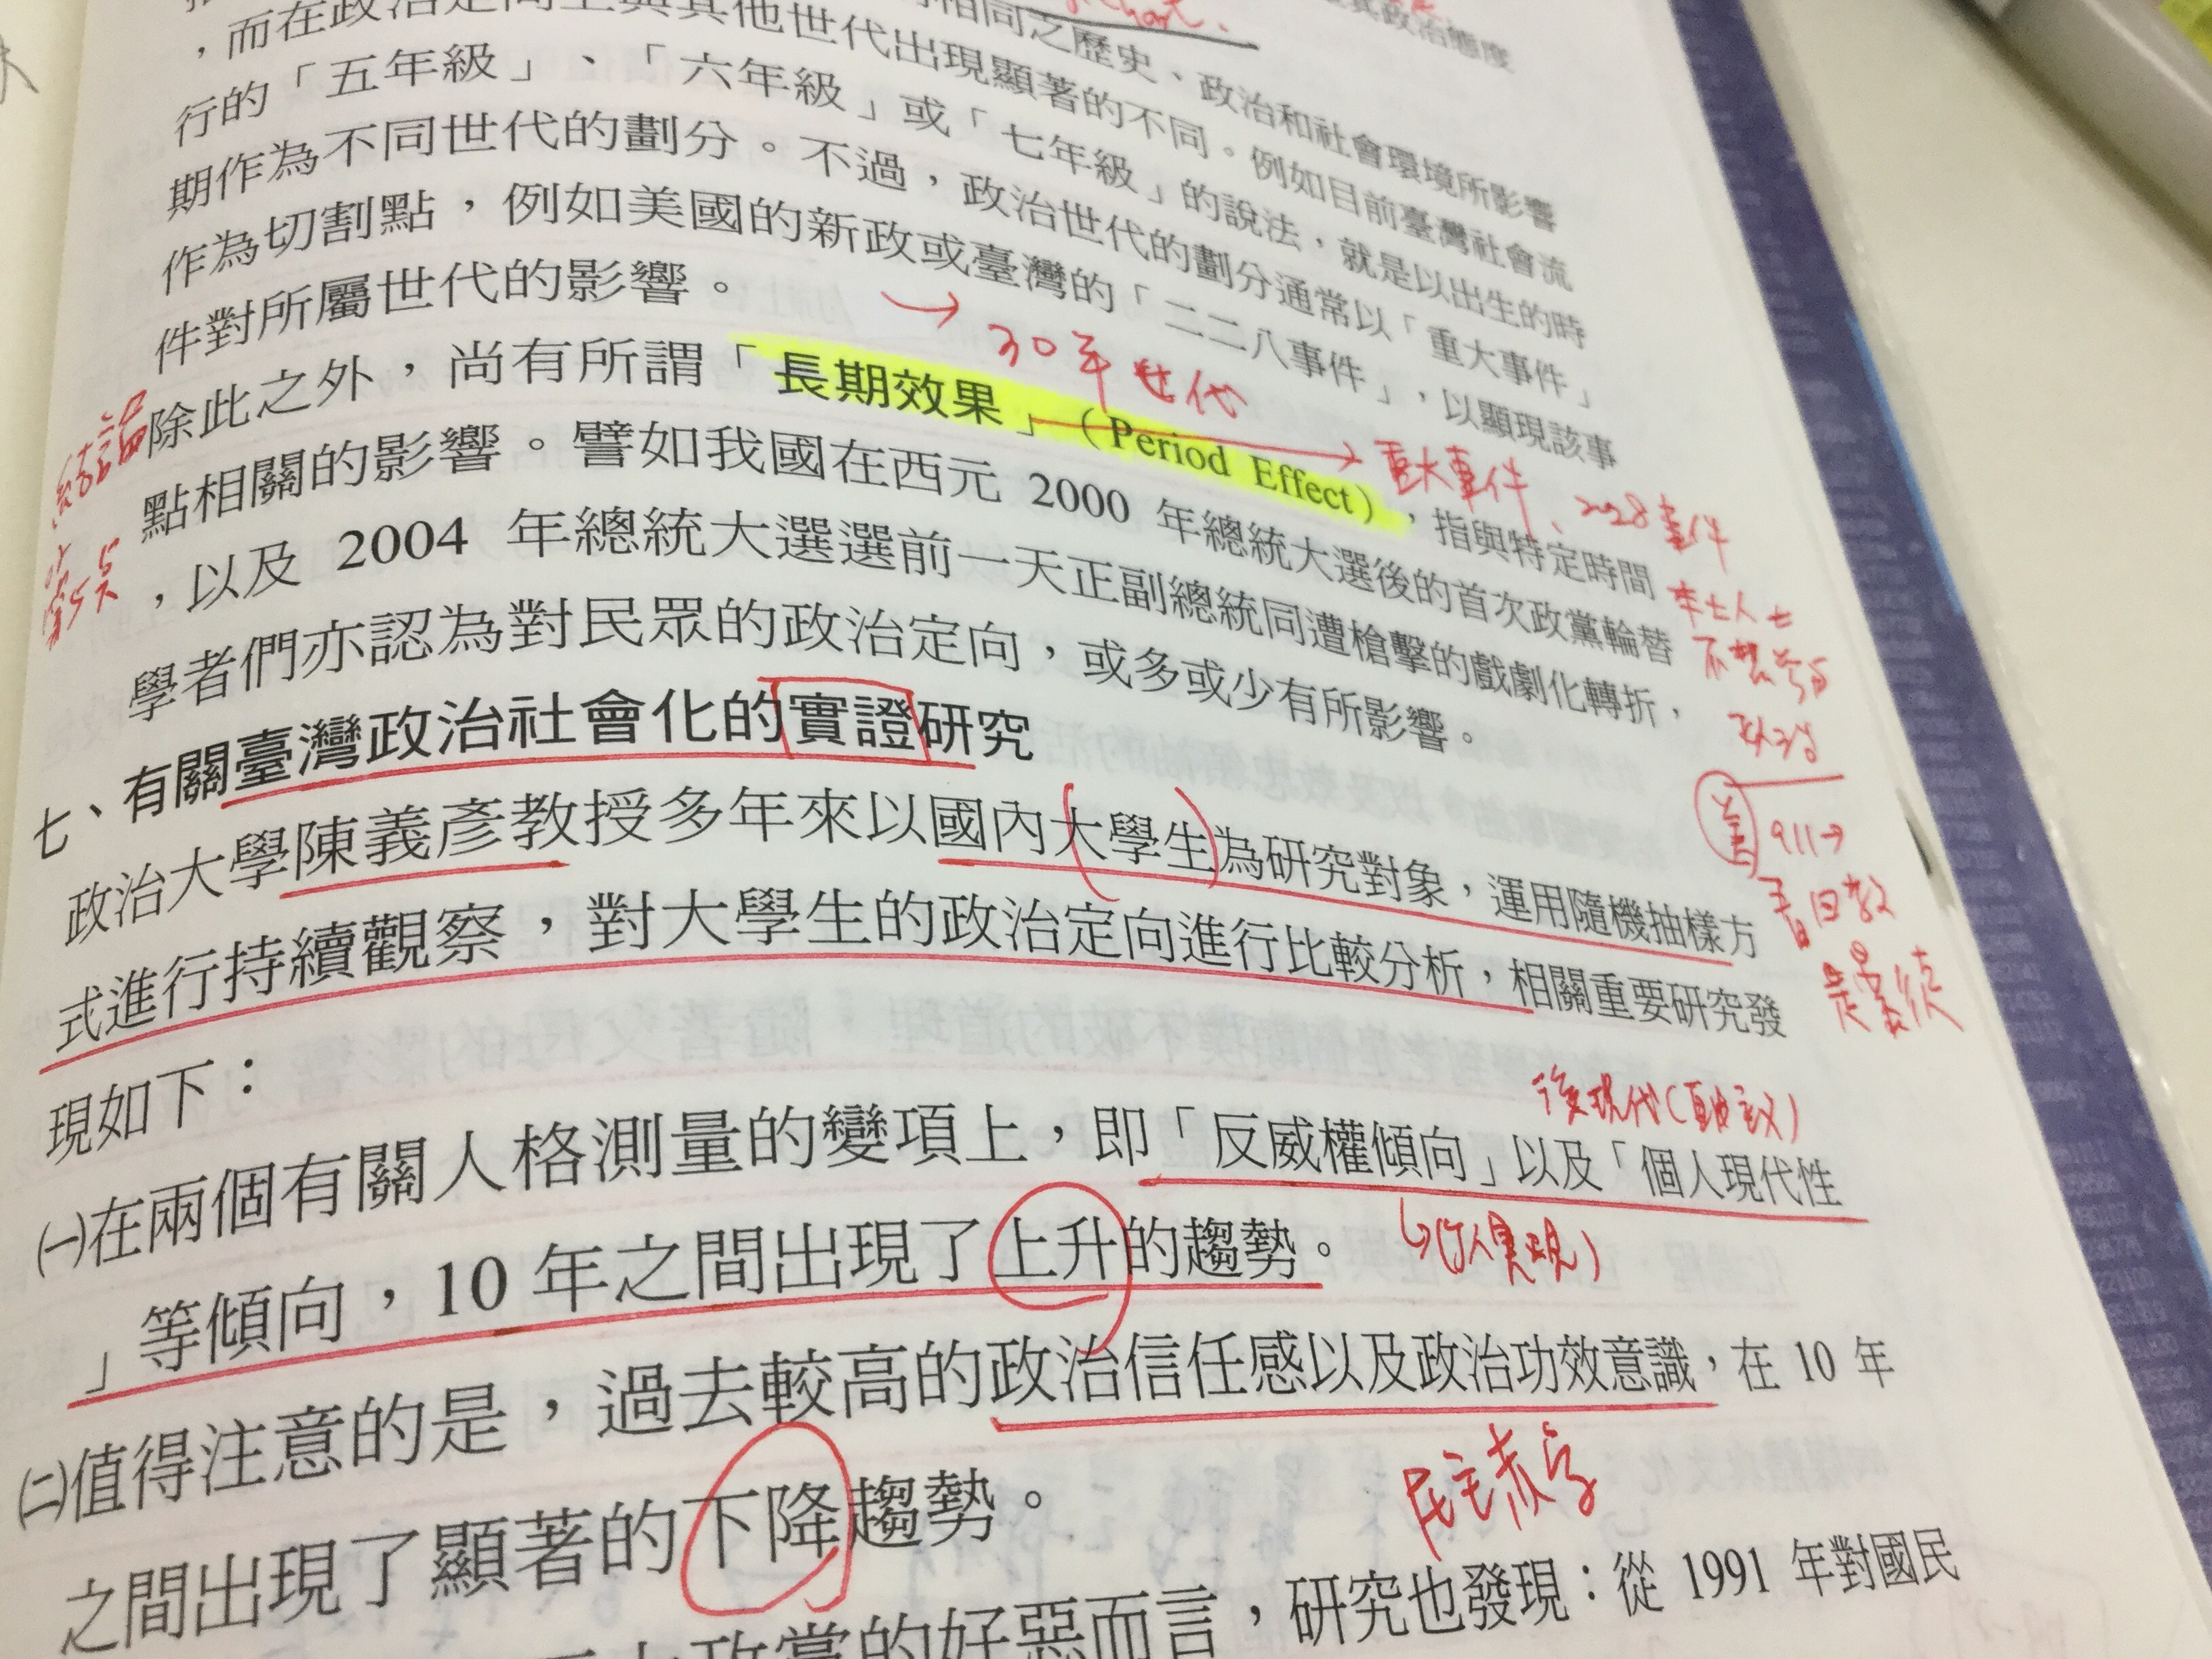 ，而在政治定向上與其他世代出現顯著的不同。例如目前臺灣社會流
相同之歷史、政治和社會環境所影響
行的「五年級」、「六年級」或「七年級」的說法，就是以出生的時
期作為不同世代的劃分。不過，政治世代的劃分通常以「重大事件」
作為切割點，例如美國的新政或臺灣的「二二八事件」，以顯現該事
件對所屬世代的影響。
30年世代
除此之外，尚有所謂「長期效果」（Period Effect），指與特定時間
重大事件、228事件
結論
點相關的影響。譬如我國在西元 2000 年總統大選後的首次政黨輪替
，以及 2004 年總統大選選前一天正副總統同遭槍擊的戲劇化轉折，
學者們亦認為對民眾的政治定向，或多或少有所影響。
本土人士
不想參與
政治
七、有關臺灣政治社會化的實證研究
政治大學陳義彥教授多年來以國內大學生為研究對象，運用隨機抽樣方
美 911→
式進行持續觀察，對大學生的政治定向進行比較分析，相關重要研究發
現如下：
後現代
㈠在兩個有關人格測量的變項上，即「反威權傾向」以及「個人現代性
」等傾向，10 年之間出現了上升的趨勢。
㈡值得注意的是，過去較高的政治信任感以及政治功效意識，在 10 年
之間出現了顯著的下降趨勢。
民主赤字
政黨的好惡而言，研究也發現：從 1991 年對國民